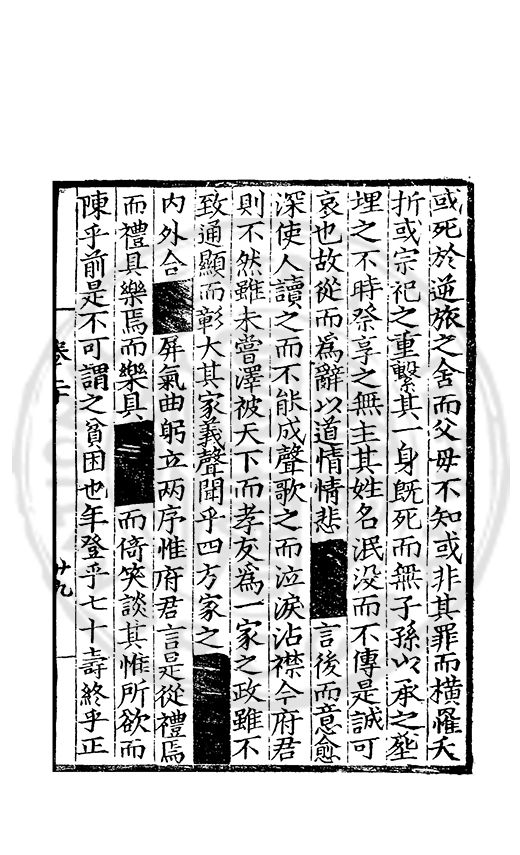 或死於逆旅之舍而父母不知或非其罪而橫罹夭
折或宗祀之重繫其一身旣死而無子孫以承之塟
埋之不時祭享之無主其姓名泯没而不傳是誠可
哀也故從而為辭以道情情悲言後而意愈
深使人讀之而不能成聲歌之而泣淚沾襟今府君
則不然雖未嘗澤被天下而孝友為一家之政雖不
致通顯而彰大其家義聲聞乎四方家之
内外合屏氣曲躬立两序惟府君言是從禮焉
而禮具樂焉而樂具而倚笑談其惟所欲而
陳乎前是不可謂之貧困也年登乎七十壽終乎正
卷二十
廿九